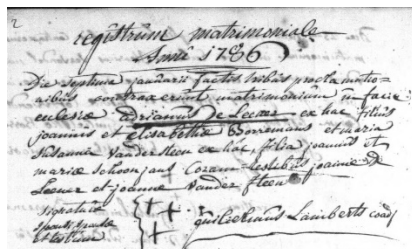 2
registrum matrimoniale
Anni 1786
Die septima januarii factis tribus proclamatio=
nibus contraxerunt matrimonium in facie
ecclesiæ Adrianus De Lecoer ex hac filius
joannis et elisabethæ Borremans et maria
Susanna Vander Steen ex hac filia joannis et
mariæ Schoonjans Coram testibus joanne De
Lecoer et joanne Vander Steen
signatura
sponsi sponsæ
et testium
guilielmus Lamberts